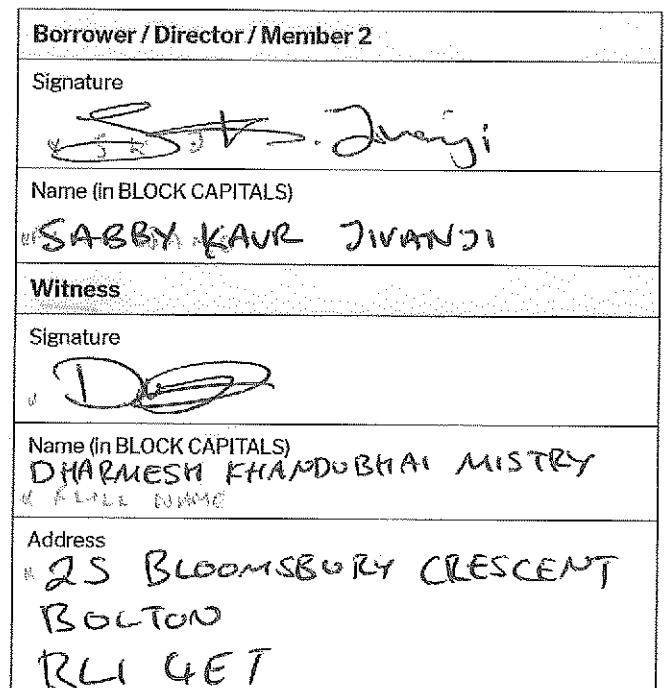 Borrower / Director / Member 2
Signature
S.K. Jivanji
Name (in BLOCK CAPITALS)
SABBY KAUR JIVANJI
Witness
Signature
Name (in BLOCK CAPITALS)
DHARMESH KHANDUBHAI MISTRY
FULL NAME
Address
25 BLOOMSBURY CRESCENT
BOLTON
BL1 4ET